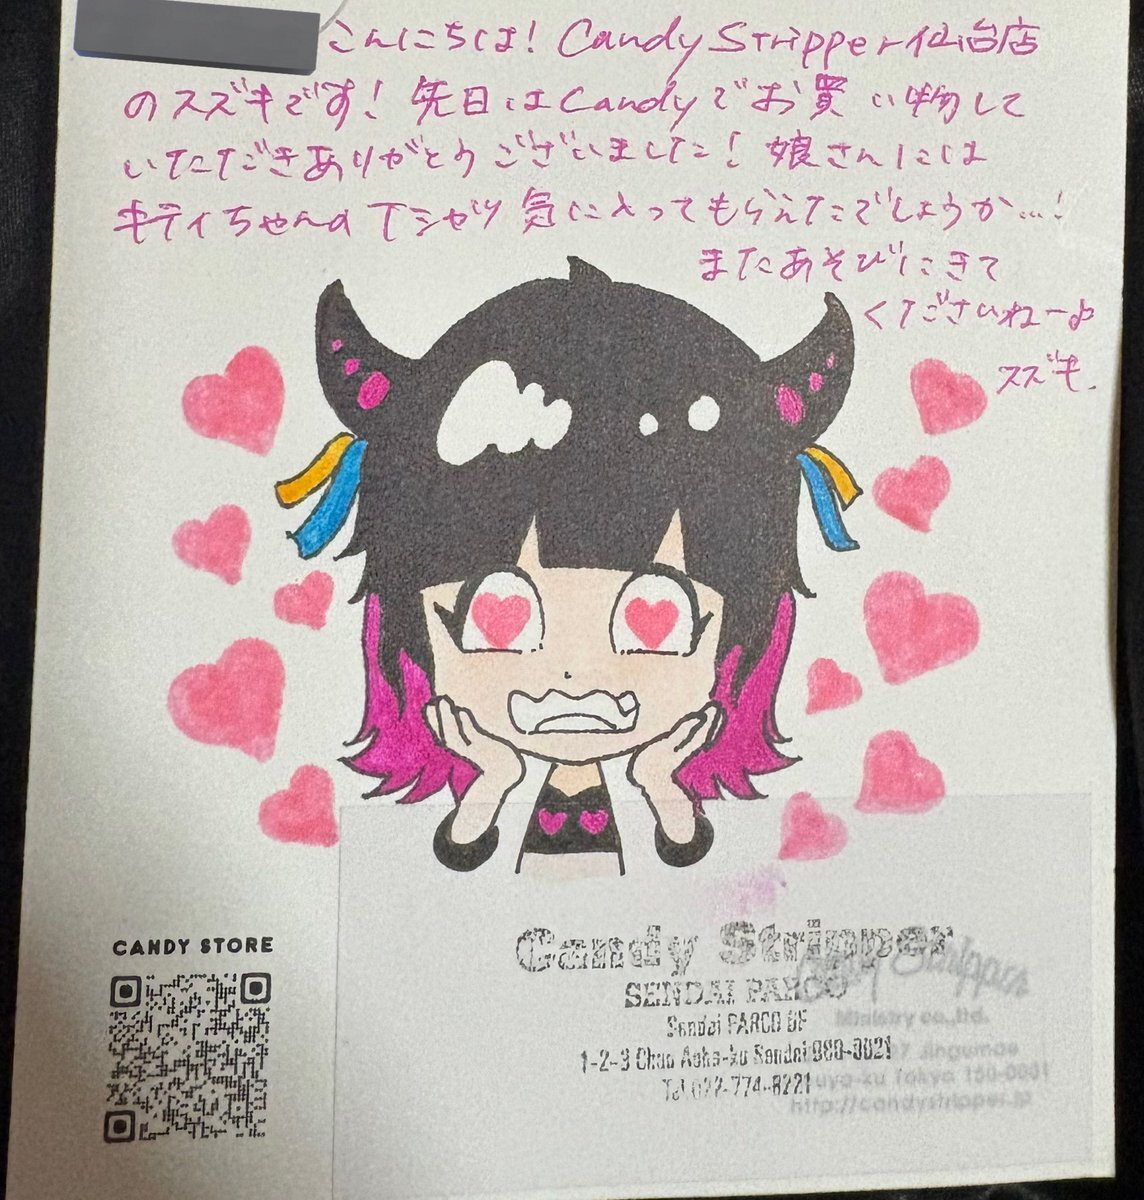 こんにちは! Candy Stripper仙台店
のスズキです! 先日はCandyでお買い物して
いただきありがとうございました! 娘さんには
キティちゃんのTシャツ気に入ってもらえたでしょうか…!
またあそびにきて
くださいねー♪
スズキ.
CANDY STORE
Candy Stripper
SENDAI PARCO
Sendai PARCO 6F
1-2-3 Chuo Aoba-ku Sendai 980-0021
Tel 022-774-8221
Candy Stripper
Ministry co.,ltd.
Jingumae
Tokyo 150-0001
http://candystripper.jp